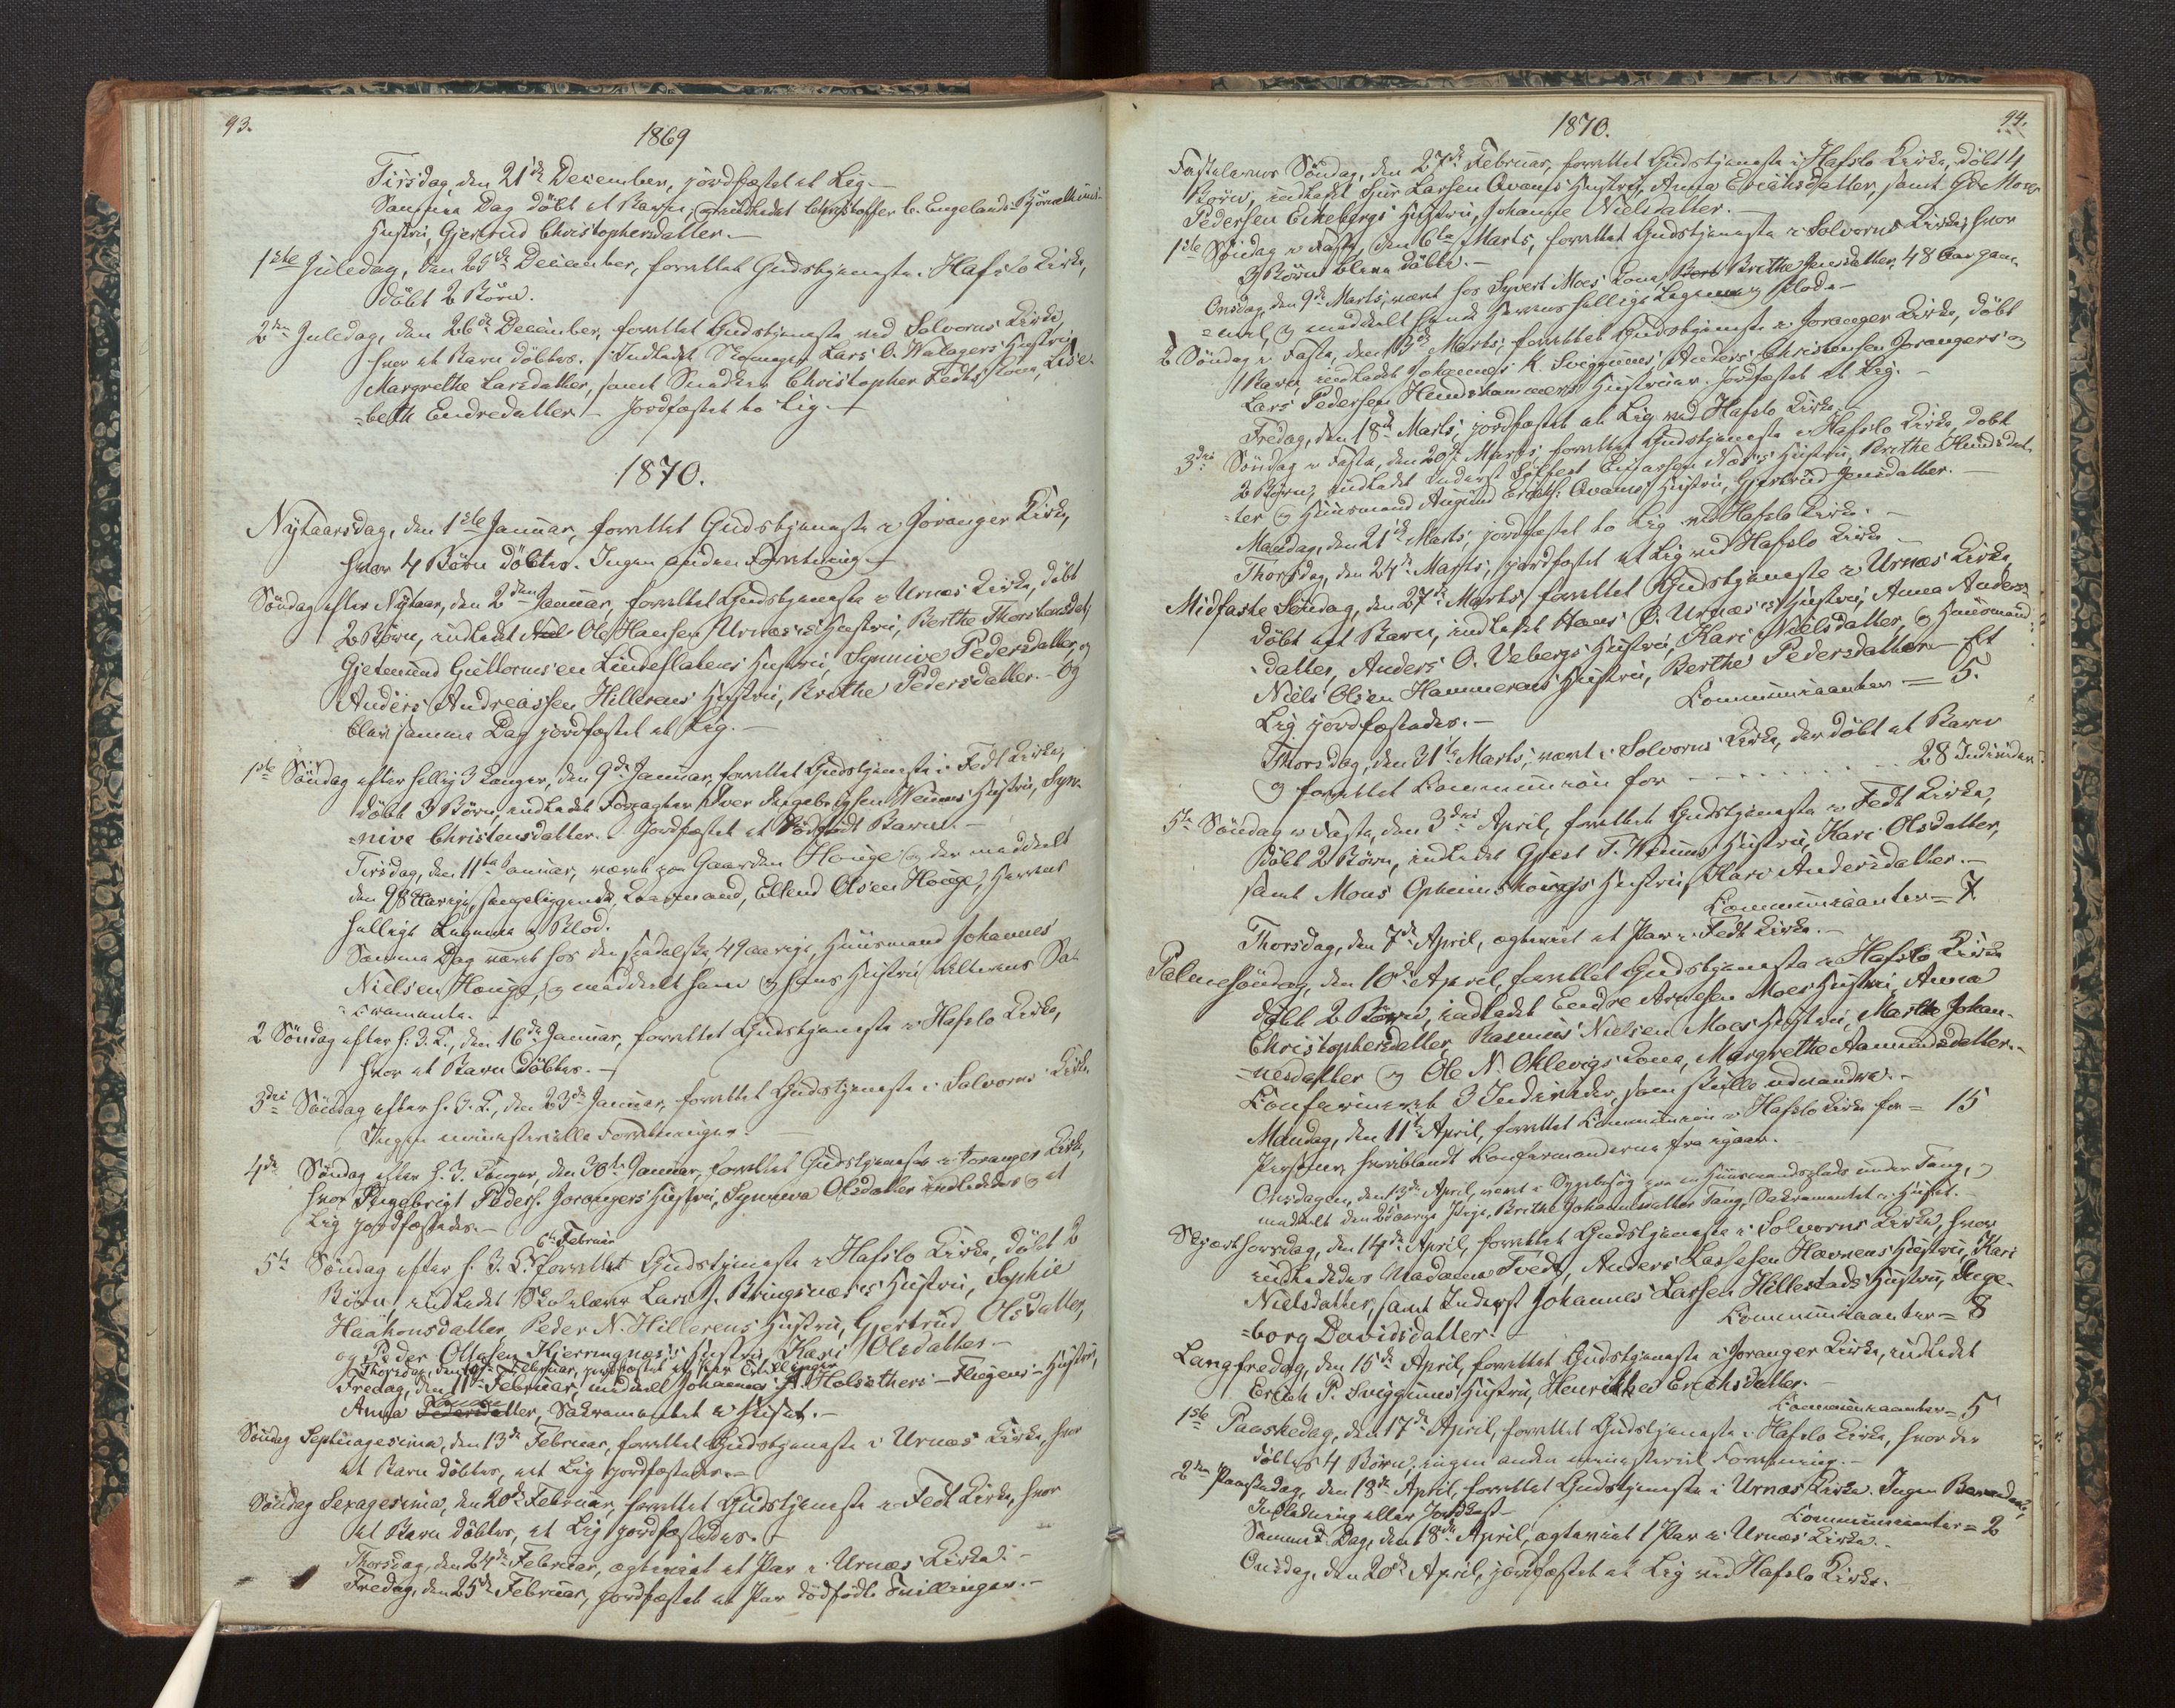 93.
1869
Tirsdag, den 21de December, jordfæstet et Lig.
Samme Dag döbt et Barn, og indledet Christoffer C. Engelands
Hustru, Gjertrud Christophersdatter.
1ste Juledag, den 25de December, forrettet Gudstjeneste i Hafslo Kirke,
döbt 2 Börn.
2den Juledag, den 26de December, forrettet Gudstjeneste ved Solvorns Kirke
hvor et Barn döbtes. Indledet Lars O. Hustru,
Margrethe Larsdatter, samt Smeden Christopher Fedts Kone, Lise-
=beth Endredatter. Jordfæstet to Lig.
1870.
Nytaarsdag, den 1ste Januar, forrettet Gudstjeneste i Joranger Kirke,
hvor 4 Börn döbtes. Ingen anden Forretning.
Söndag efter Nytaar, den 2den Januar, forrettet Gudstjeneste i Urnæs Kirke, döbt
2 Börn, indledet Ole Hansen Urnæs's Hustru, Berthe Thorstensdat,
Gjetmund Guttormsen Lindeflatens Hustru, Synnive Pedersdatter, og
Anders Andreassen Hillerens Hustru, Brithe Pedersdatter. Og
blev samme Dag jordfæstet et Lig.
1ste Söndag efter hellig 3 Konger, den 9de Januar, forrettet Gudstjeneste i Fedt Kirke,
döbt 3 Börn, indledet Forpagter Iver Ingebrigtsen Hustru, Syn-
=nive Christensdatter. Jordfæstet et dödfödt Barn.
Tirsdag, den 11te Januar, været paa Gaarden Houge og der meddeelt
den 98 Aarige, sengeliggende, Kaarmand, Ellend Olsen Houge, Herrens
hellige Legeme og Blod.
Samme Dag været hos den spedalske, 49 aarige, Huusmand Johannes
Nielsen Houge, og meddeelt ham og hans Hustru Alterens Sa-
=kramente.
2 Söndag efter h. 3. K., den 16de Januar, forrettet Gudstjeneste i Hafslo Kirke,
hvor et Barn döbtes.
3die Söndag efter h. 3. K., den 23de Januar, forrettet Gudstjeneste i Solvorns Kirke.
Ingen ministerielle Forretninger.
4de Söndag efter h. 3. Konger, den 30te Januar, forrettet Gudstjeneste i Joranger Kirke,
hvor Ingebrigt Peders. Jorangers Hustru, Synneva Olsdatter indlededes og et
Lig jordfæstedes.
6te Februar
5te Söndag efter h. 3. K. forrettet Gudstjeneste i Hafslo Kirke, döbt 2
Börn, indledet Skolelærer Lars J. Bringsnæs's Hustru, Sophie
Haakonsdatter, Peder N. Hillerens Hustru, Gjertrud Olsdatter,
og Peder Ottesen Kjerringnæs's Hustru, Kari Olsdatter.
Thorsdag, den 10de Februar, jordfæstet et Par Tvillinger
Fredag, den 11te Februar, meddeelt Johannes Holsethers Hustru,
Anna Pedersdatter, Sakramentet i Huset.
Söndag Septuagesima, den 13de Februar, forrettet Gudstjeneste i Urnæs Kirke, hvor
et Barn döbtes, et Lig jordfæstedes.
Söndag Sexagesima, den 20de Februar, forrettet Gudstjeneste i Fedt Kirke, hvor
et Barn döbtes, et Lig jordfæstedes.
Thorsdag, den 24de Februar, ægteviet et Par i Urnæs Kirke.
Fredag, den 25de Februar, jordfæstet et Par dödfödte Tvillinger.
1870.
94.
Fastelavns Söndag, den 27de Februar, forrettet Gudstjeneste i Hafslo Kirke, döbt 4
Börn, indledet Sjur Larsen Qvams Hustru, Anna Erichsdatter, samt
Pedersen Eikebergs Hustru, Johanne Nielsdatter.
1ste Söndag i Faste, den 6te Marts, forrettet Gudstjeneste i Solvorns Kirke, hvor
3 Börn bleve döbte.
Onsdag, den 9de Marts, været hos Syvert Moes Kone, Brithe Jensdatter, 48 Aar gam-
=mel, og meddeelt hende Herrens hellige Legeme og Blod.
2 Söndag i Faste, den 13de Marts, forrettet Gudstjeneste i Joranger Kirke, döbt
1 Barn, indledet Johannes K. Sviggums Anders Christensen Jorangers og
Lars Pedersen Hundshammers Hustruer. Jordfæstet et Lig.
Fredag, den 18de Marts, jordfæstet et Lig ved Hafslo Kirke.
3die Söndag i Faste, den 20de Marts, forrettet Gudstjeneste i Hafslo Kirke, döbt
2 Börn, indledet Inderst Sölfest Næs's Hustru, Berthe
=ter og Huusmand Augund Erichs. Qvams Hustru, Gjertrud Jensdatter.
Mandag, den 21de Marts, jordfæstet to Lig ved Hafslo Kirke.
Thorsdag, den 24de Marts, jordfæstet et Lig ved Hafslo Kirke
Midfaste Söndag, den 27de Marts, forrettet Gudstjeneste i Urnæs Kirke,
döbt eet Barn, indledet Hans O. Urnæs's Hustru, Anna Anders-
=datter, Anders O. Vebergs Hustru, Kari Nielsdatter, og Huusmand
Niels Olsen Hammerens Hustru, Berthe Pedersdatter. Et
Lig jordfæstedes. Kommunicanter = 5.
Thorsdag, den 31te Marts, været i Solvorns Kirke, der döbt et Barn
og forrettet Kommunion for 28 Individer
5te Söndag i Faste, den 3die April, forrettet Gudstjeneste i Fedt Kirke,
döbt 2 Börn, indledet T. Hustru, Kari Olsdatter,
samt Mons Hustru, Kari Andersdatter.
Kommunicanter = 7
Thorsdag, den 7de April, ægteviet et Par i Fedt Kirke.
Palmesöndag, den 10de April, forrettet Gudstjeneste i Hafslo Kirke
döbt 2 Börn, indledet Endre Arnesen Moes Hustru, Anna
Christophersdatter, Rasmus Nielsen Moes Hustru, Marthe Johan-
=nesdatter og Ole N. Oklevigs Kone, Margrethe Aamundsdatter.
Konfirmeret 3 Individer, som skulle udvandre.
Mandag, den 11te April, forrettet Kommunion i Hafslo Kirke for = 15
Personer, hvoriblandt Konfirmanderne fra igaar.
Onsdagen, den 13de April, været i Sygebesög paa en Huusmandsplads under Tang, og
meddeelt den aarige Pige, Brithe Johannesdatter Tang, Sakramentet i Huset.
Skjærthorsdag, den 14de April, forrettet Gudstjeneste i Solvorns Kirke, hvor
indlededes Madame Fedt, Anders Lassesen Havnens Hustru, Kari
Nielsdatter, samt Inderst Johannes Larsen Hillestads Hustru, Inge-
=borg Davidsdatter. Kommunicanter = 8
Langfredag, den 15de April, forrettet Gudstjeneste i Joranger Kirke, indledet
Erich P. Sviggums Hustru, Henrikke Erichsdatter.
Kommunicanter = 5
1ste Paaskedag, den 17de April, forrettet Gudstjeneste i Hafslo Kirke, hvor der
döbtes 4 Börn, ingen anden ministeriel Forretning.
2den Paaskedag, den 18de April, forrettet Gudstjeneste i Urnæs Kirke. Ingen Barnedaab,
Indledning eller Jordfæst. Kommunicanter = 2
Samme Dag, den 18de April, ægteviet 1 Par i Urnæs Kirke.
Onsdag, den 20de April, jordfæstet et Lig ved Hafslo Kirke.